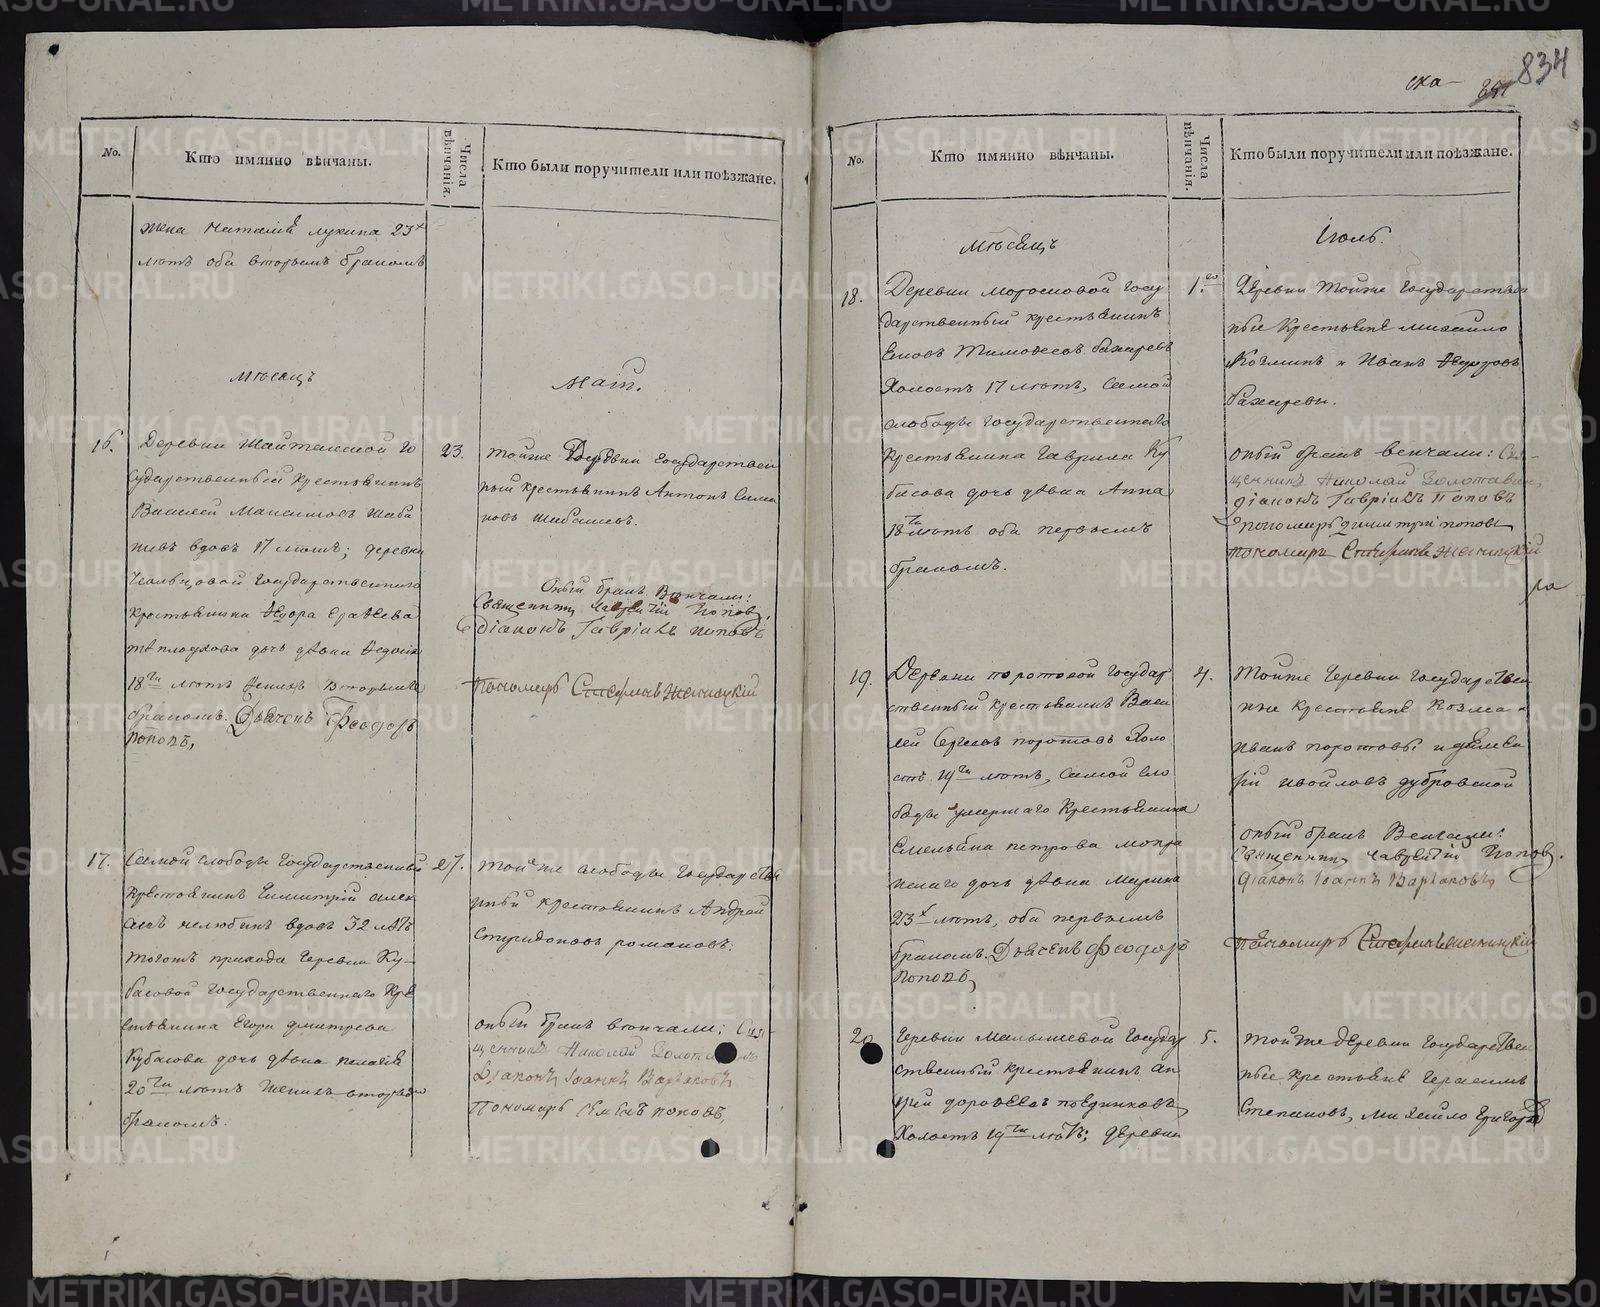 834
ска-
No.
Кто имянно вѣнчаны.
Числа вѣнчанія.
Кто были поручители или поѣзжане.
жена Наталія Лукина 23х
лѣтъ оба вторымъ бракомъ
Мѣсяцъ
Маій.
16.
Деревни Шайтанской Го
сударственный крестьянинъ
Василей Максимовъ Шаба
левъ вдовъ 17 лѣтъ; деревни
Государственнаго
крестьянина Ѳедора
дочь дѣвка Ѳедосія
18ти лѣтъ женихъ вторымъ
бракомъ. Дьячекъ Ѳеодоръ
Поповъ,
23.
тойже Деревни Государствен
ный крестьянинъ Антонъ Сима
новъ
Оный бракъ Вѣнчали:
Священникъ Лаврентій Поповъ,
Діаконъ Гавріилъ Поповъ
Пономарь Стефанъ Женицкій
17.
Самой слободы Государственный
крестьянинъ Димитрій Алек
сѣевъ Челюбинъ вдовъ 32 лѣтъ
тогожъ прихода деревни Ку-
басовой Государственнаго Кре
стьянина Егора Дмитрева
Кубасова дочь дѣвка Пелагія
20ти лѣтъ женихъ вторымъ
бракомъ.
27.
тойже слободы Государстве
нный крестьянинъ Андрей
Спиридоновъ Романовъ.
оный бракъ вѣнчали: Свя-
щенникъ Николай Золотавинъ
Діаконъ Іоаннъ Варлаковъ
Пономарь Поповъ,
No.
Кто имянно вѣнчаны.
Числа вѣнчанія.
Кто были поручители или поѣзжане.
Мѣсяцъ
Іюль.
18.
Деревни Морозковой Госу
дарственный крестьянинъ
Тимоѳеевъ Бахаревъ
Холостъ 17 лѣтъ, Самой
слободы Государственнаго
Крестьянина Гаврила Ку
басова дочь дѣвка Анна
18ти лѣтъ оба первымъ
бракомъ.
1.го
Деревни Тойже Государствен
ные Крестьяне Михайло
Козминъ и Иванъ Ѳедоровъ
Бахаревы.
оный бракъ венчали: Свя-
щенникъ Николай Золотавинъ,
Діаконъ Гавріилъ Поповъ
Пономарь Димитрій Поповъ
пономарь Стефанъ Женицкій
19.
Деревни Поротовой Государ
ственный крестьянинъ Васи
лей Сергѣевъ Поротовъ Холо
стъ 19ти лѣтъ, Самой Сло
боды умершаго Крестьянина
Емельяна Петрова
дочь дѣвка Марина
23х лѣтъ, оба первымъ
бракомъ. Дьячекъ Ѳеодоръ
Поповъ,
4.
Тойже Деревни Государствен
ные крестьяне Козма и
Иванъ Поротовы
Дубровской
оный бракъ Венчали:
Священникъ Лаврентій Поповъ.
Діаконъ Іоаннъ Варлаковъ,
Пономарь Стефанъ Женицкій
20.
Деревни Малышевой Государ
ственный крестьянинъ Ан
дрей Дороѳеевъ Поединковъ
Холостъ 19ти лѣтъ; деревни
5.
тойже деревни Государствен
ные крестьяне Герасимъ
Степановъ, Михайло Григорьевъ
METRIKI.GASO-URAL.RU